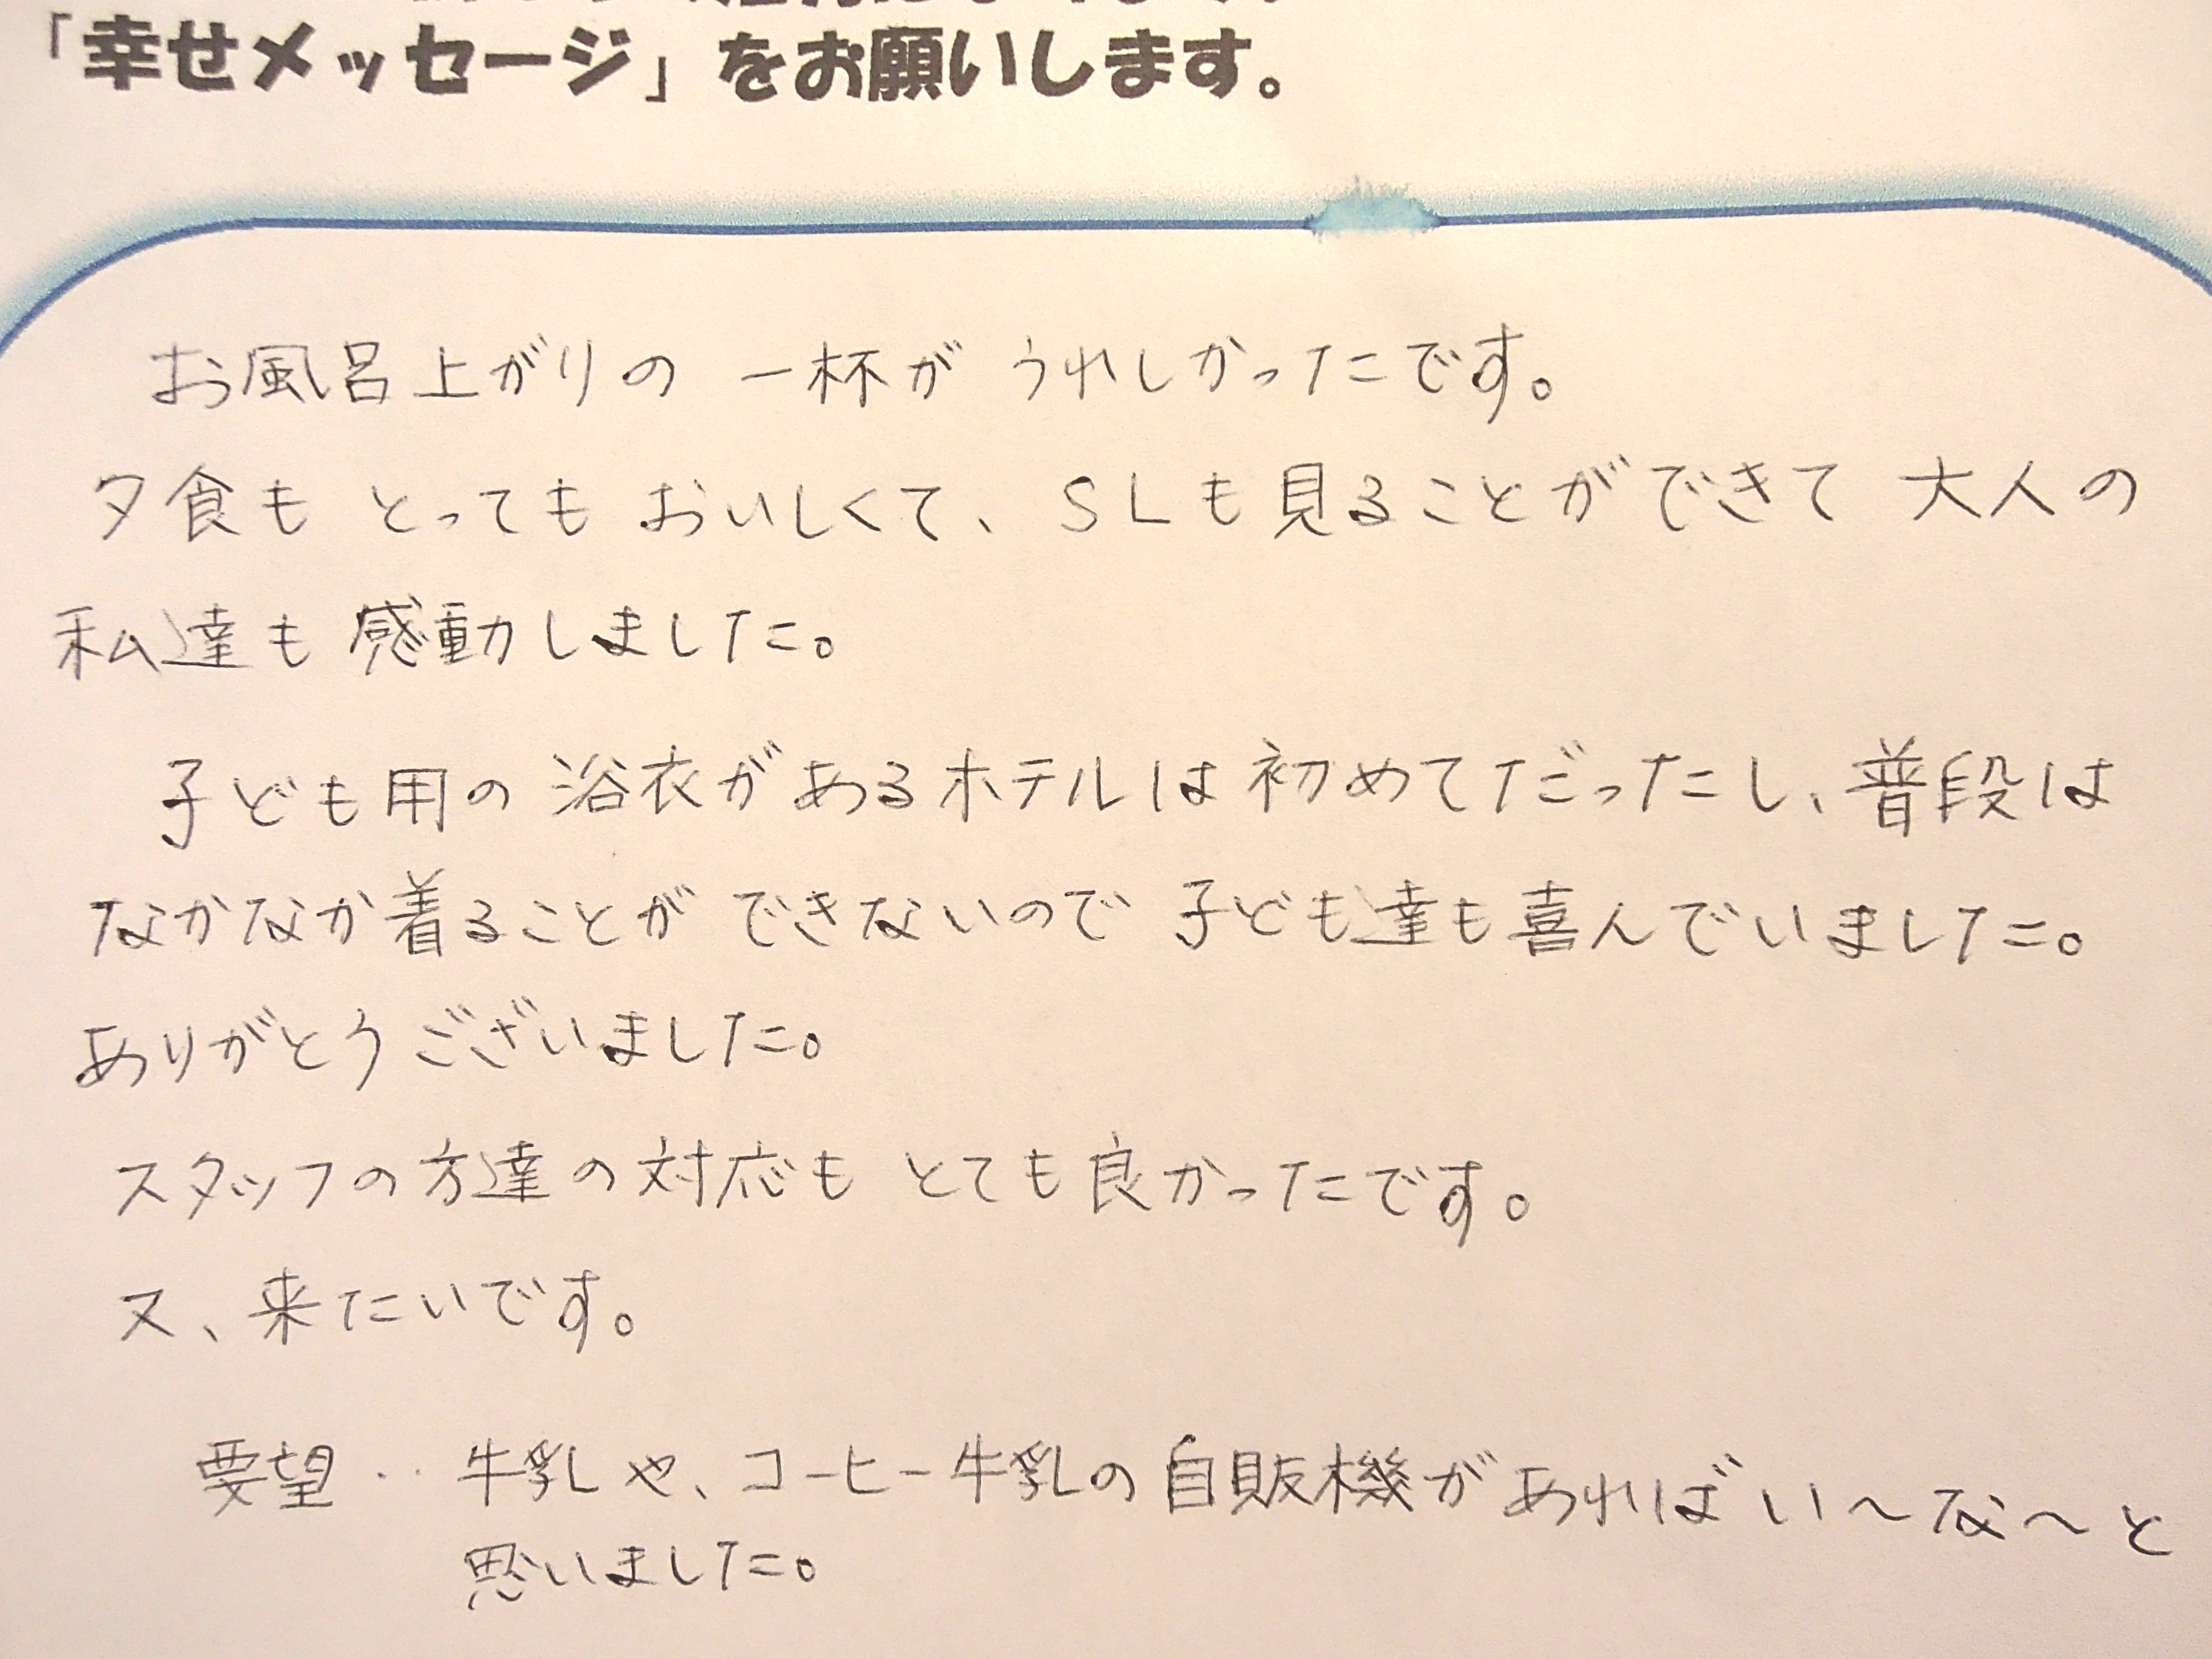 「幸せメッセージ」をお願いします。
お風呂上がりの 一杯が うれしかったです。
夕食も とっても おいしくて、SLも見ることができて 大人の
私達も 感動しました。
子ども用の 浴衣があるホテルは 初めてだったし、普段は
なかなか着ることが できないので 子ども達も喜んでいました。
ありがとうございました。
スタッフの方達の対応も とても良かったです。
又、来たいです。
要望‥ 牛乳や、コーヒー牛乳の自販機があればい〜な〜と
思いました。